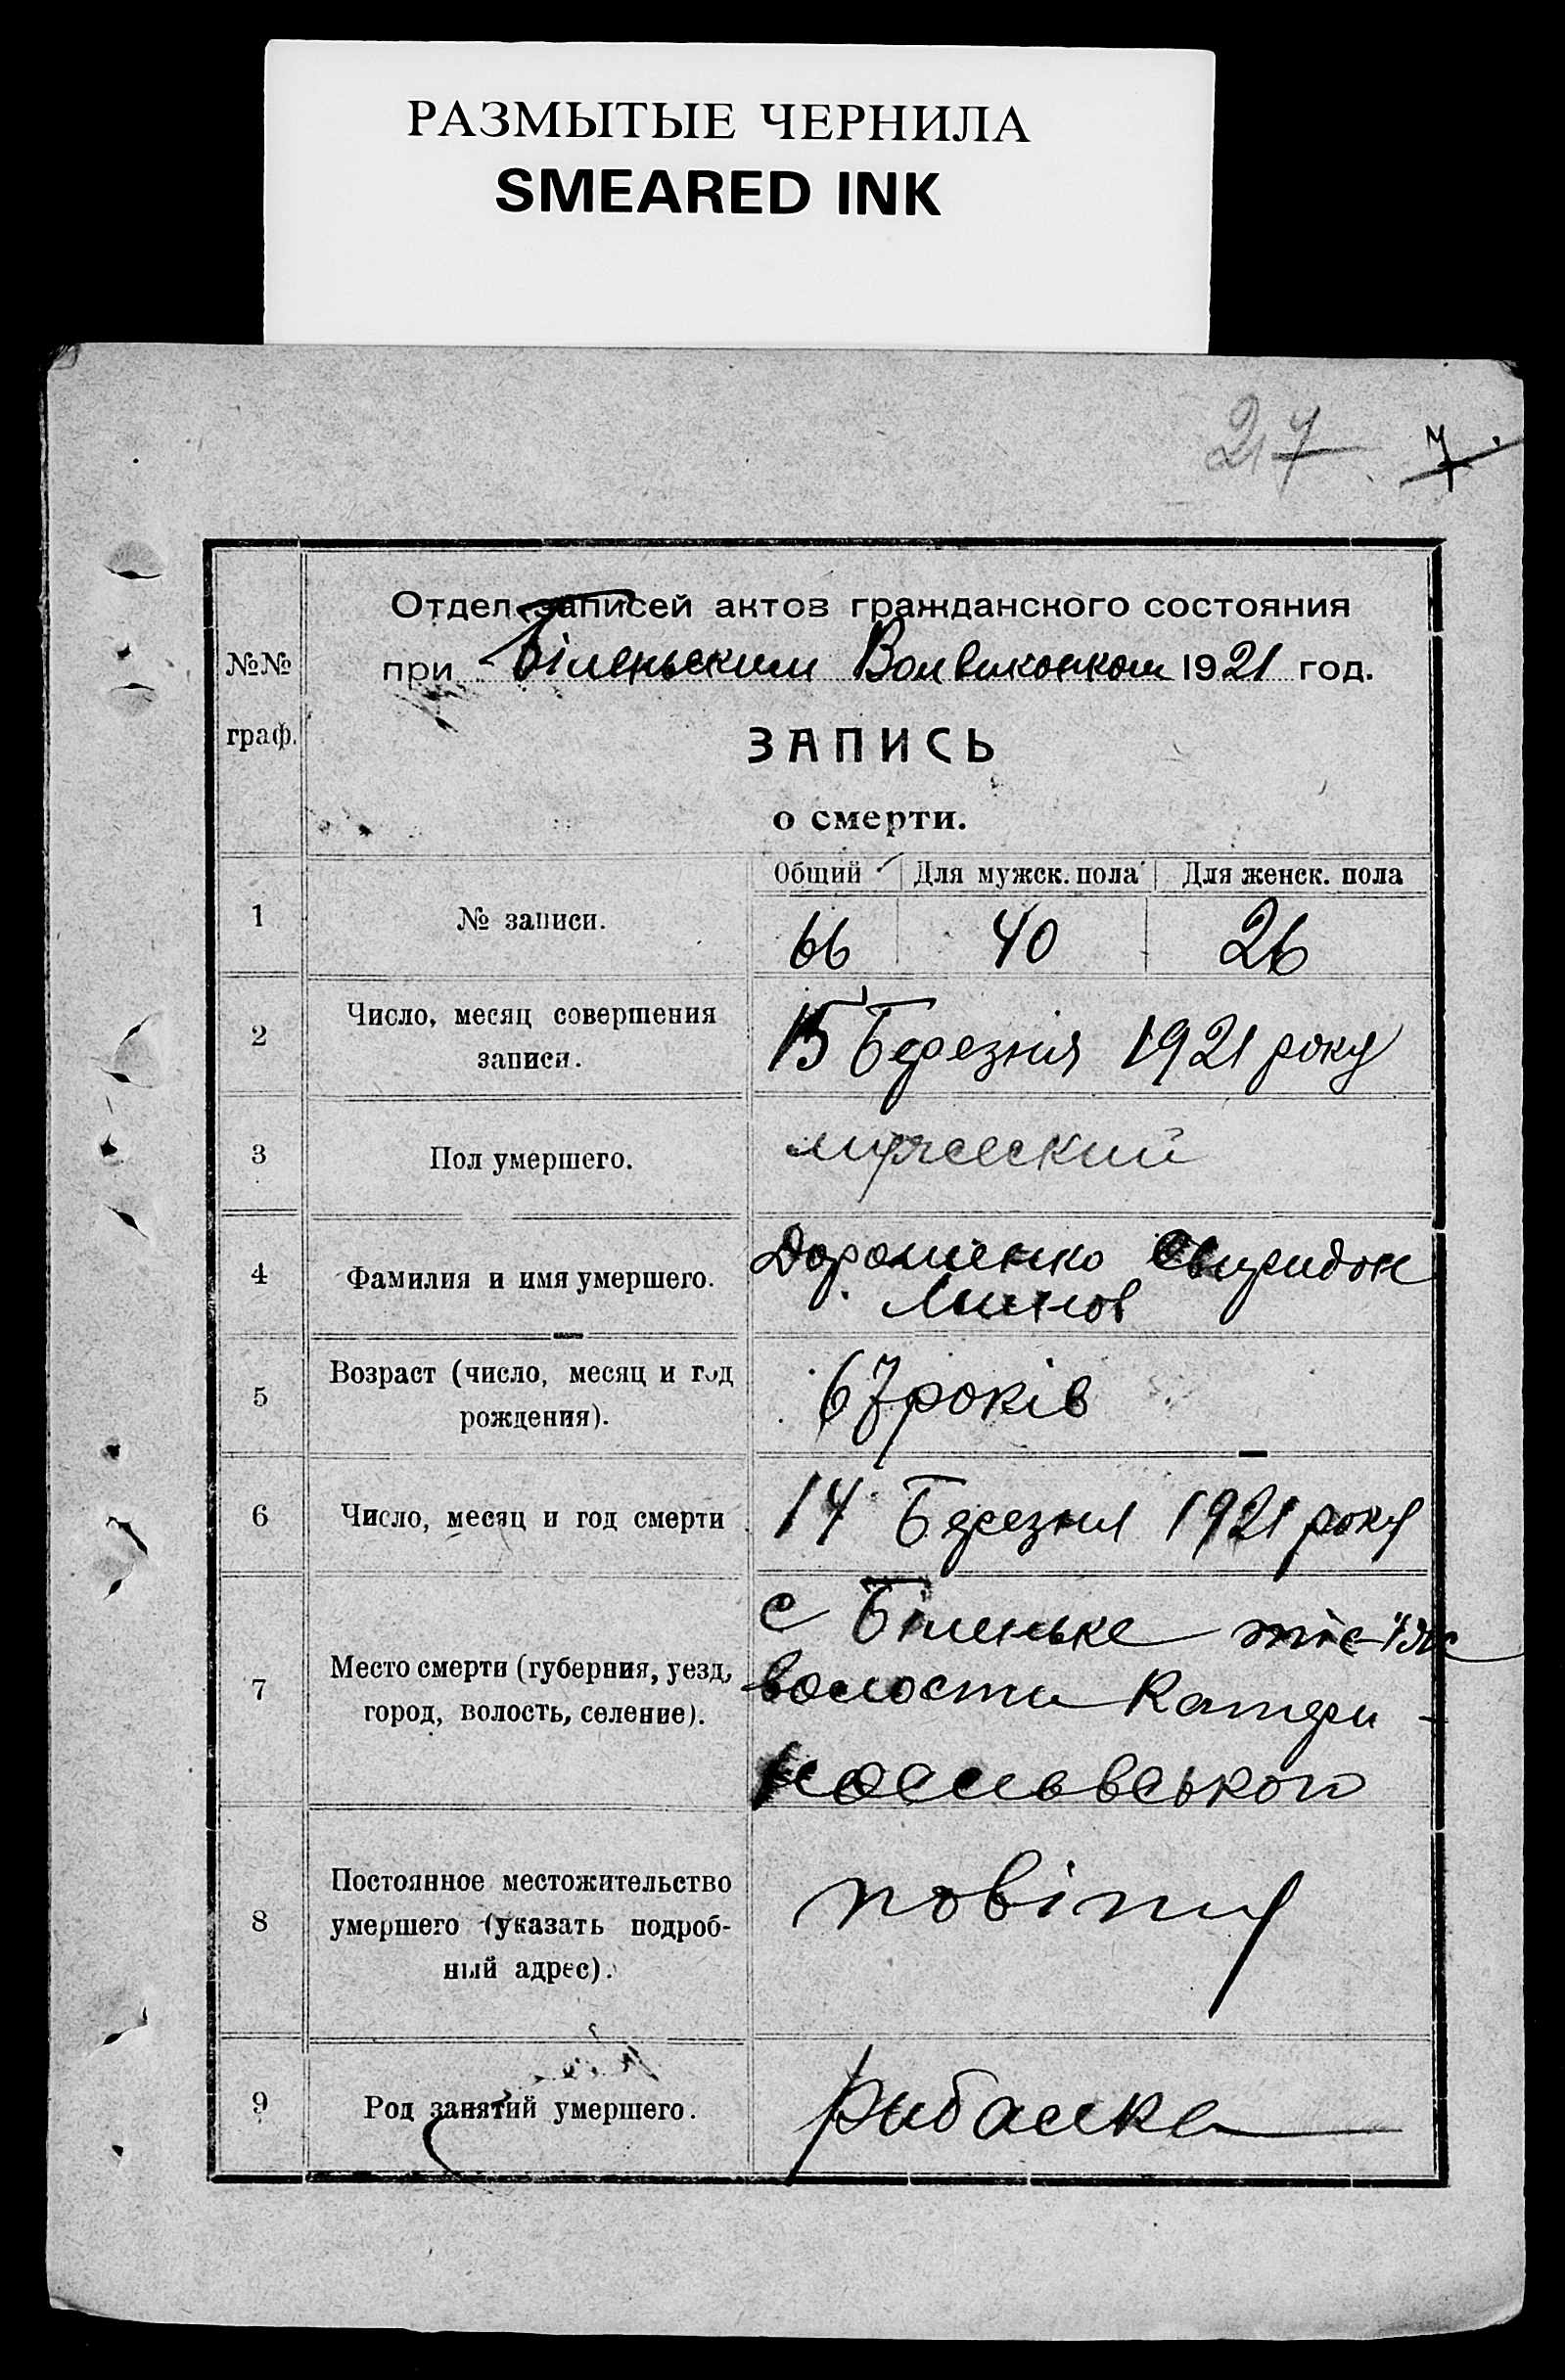 РАЗМЫТЫЕ ЧЕРНИЛА
SMEARED INK
27 7
Отдел записей актов гражданского состояния
№№
граф.
при Біленьским Волвиконком 1921 год.
ЗАПИСЬ
о смерти.
Общий Для мужск. пола Для женск. пола
1 № записи. 66 40 26
2 Число, месяц совершения
записи.
15 Березня 1921 року
3 Пол умершего. мужеский
4 Фамилия и имя умершего.
Дорошенко Свиридон
5 Возраст (число, месяц и год
рождения).
67 років
6 Число, месяц и год смерти 14 Березня 1921 року
7 Место смерти (губерния, уезд,
город, волость, селение).
с Біленьке тіє-ж
волости Катери-
нославського
8 Постоянное местожительство
умершего (указать подроб-
ный адрес).
повіту
9 Род занятий умершего. рыбалка